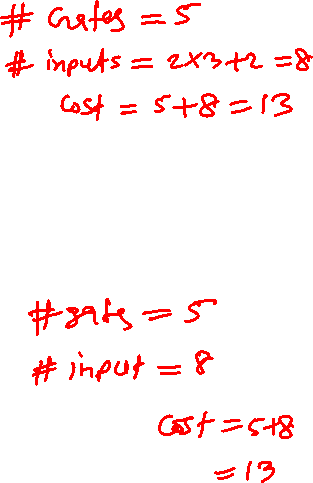 # Gates = 5
# inputs = 2x3+2 = 8
Cost = 5+8 = 13
#gates = 5
# input = 8
Cost = 5+8
= 13